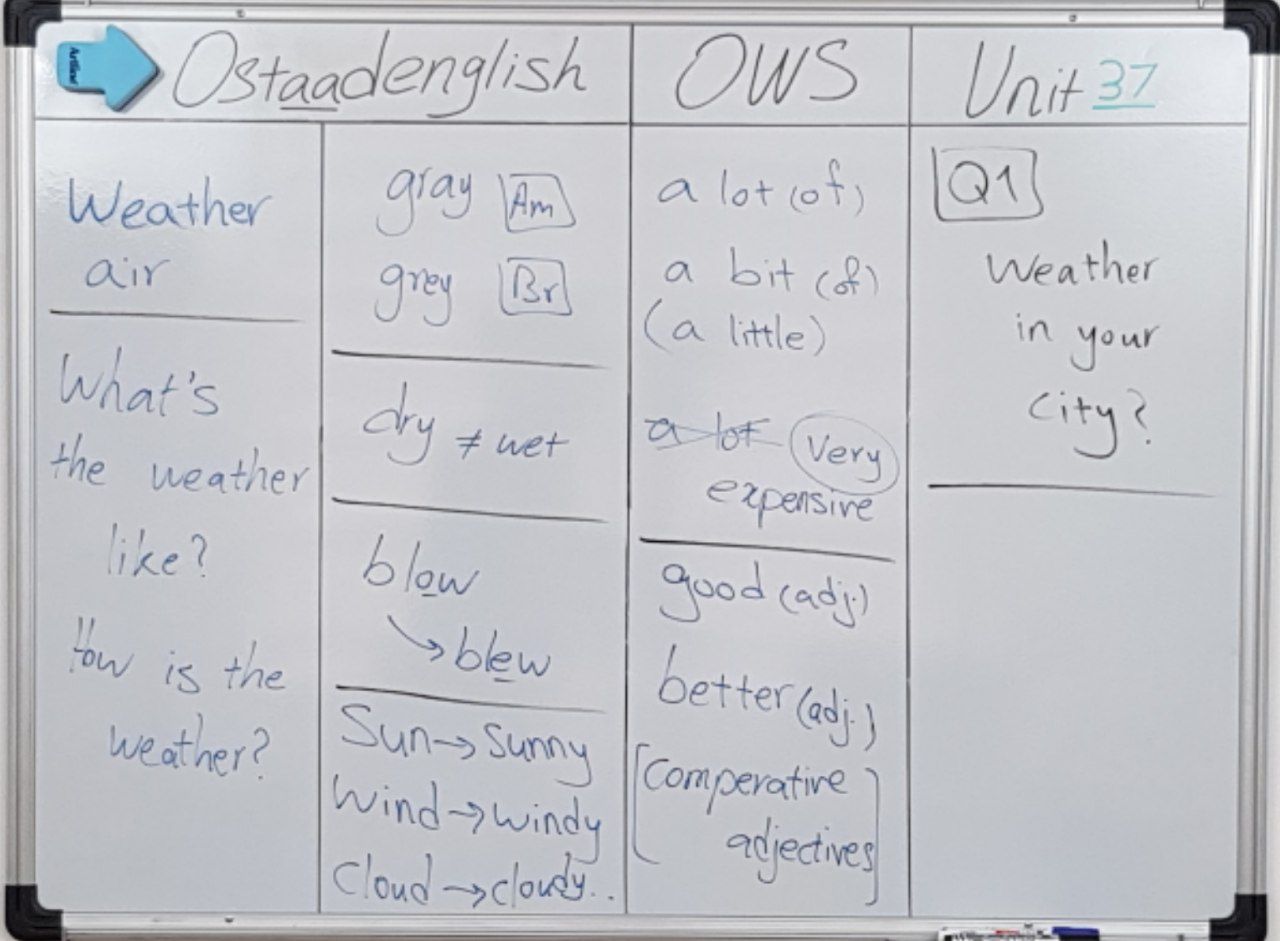 Ostaadenglish
OWS
Unit 37
Weather
air
What's
the weather
like?
How is the
weather?
gray Am
grey Br
dry ≠ wet
blow
→ blew
Sun → Sunny
Wind → windy
Cloud → cloudy..
a lot (of)
a bit (of)
(a little)
a lot Very
expensive
good (adj.)
better (adj.)
[Comperative
adjectives]
Q1
Weather
in your
City?